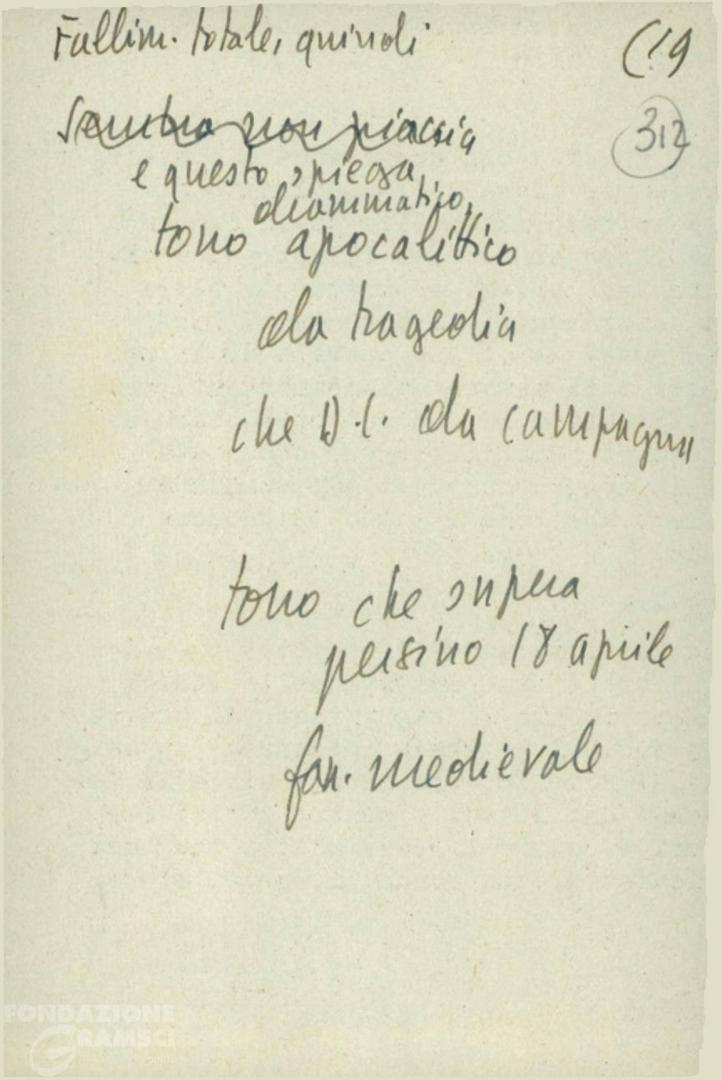 Fallim. totale, quindi
(19
312
Sembra non piaccia
e questo spiega
drammatico,
tono apocalittico
da tragedia
che D.C. dà campagna
tono che supera
persino 18 aprile
fan. medievale
FONDAZIONE
GRAMSCI